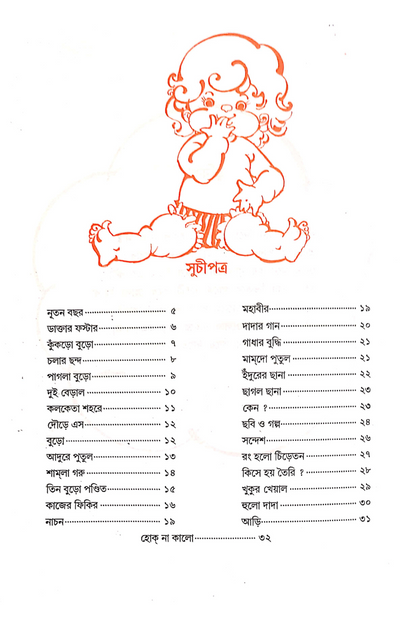 সূচীপত্র
নূতন বছর ৫
ডাক্তার ফস্টার ৬
কুঁকড়ো বুড়ো ৭
চলার ছন্দ ৮
পাগলা বুড়ো ৯
দুই বেড়াল ১০
কলকেতা শহরে ১১
দৌড়ে এস ১২
বুড়ো ১২
আদুরে পুতুল ১৩
শাম্‌লা গরু ১৪
তিন বুড়ো পণ্ডিত ১৫
কাজের ফিকির ১৬
নাচন ১৯
মহাবীর ১৯
দাদার গান ২০
গাধার বুদ্ধি ২১
মাম্‌দো পুতুল ২১
ইঁদুরের ছানা ২২
ছাগল ছানা ২৩
কেন ? ২৩
ছবি ও গল্প ২৪
সন্দেশ ২৬
রং হলো চিড়েতন ২৭
কিসে হয় তৈরি ? ২৮
খুকুর খেয়াল ২৯
হুলো দাদা ৩০
আড়ি ৩১
হোক্ না কালো ৩২